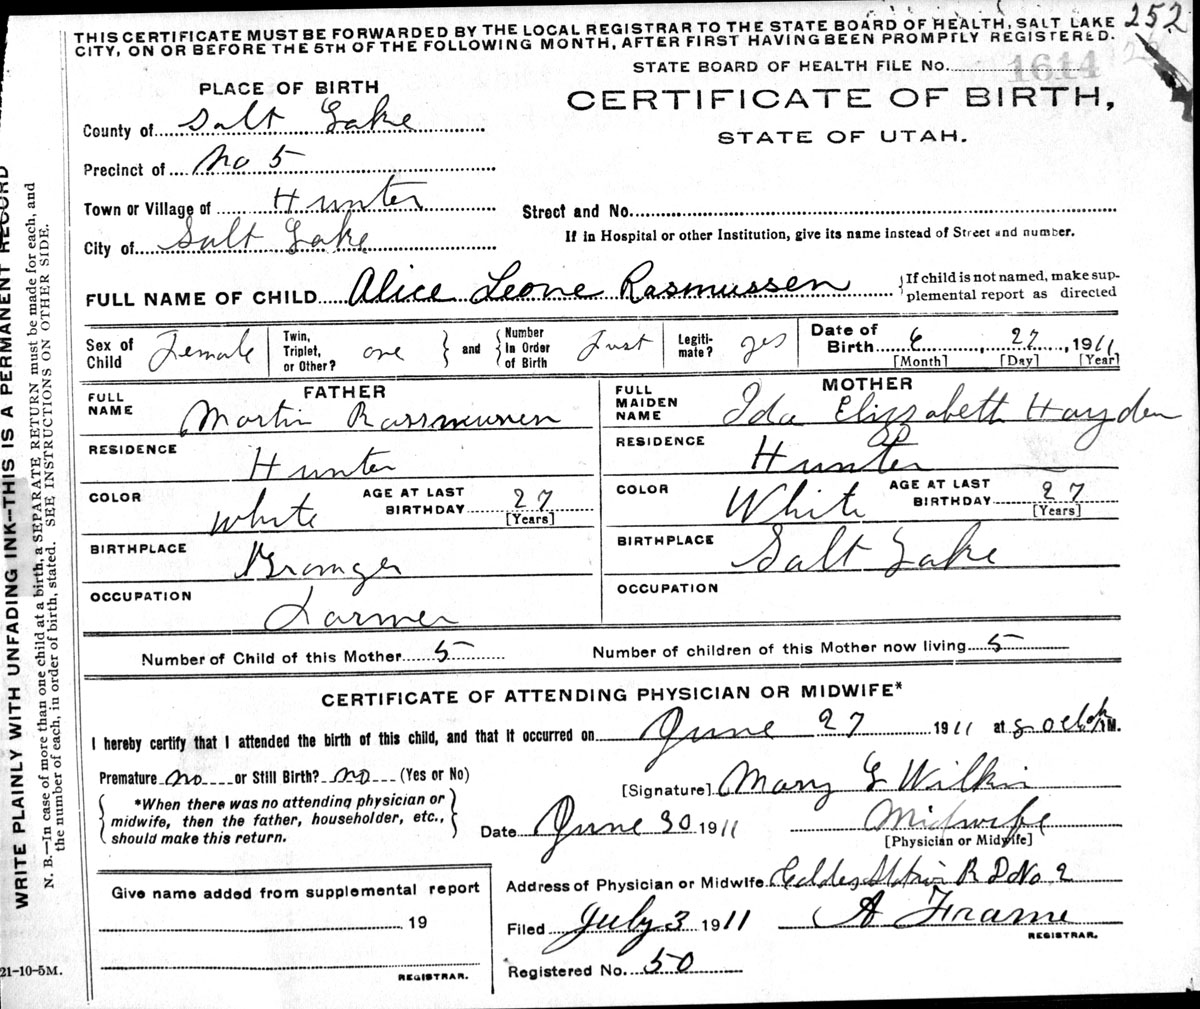 THIS CERTIFICATE MUST BE FORWARDED BY THE LOCAL REGISTRAR TO THE STATE BOARD OF HEALTH, SALT LAKE
CITY, ON OR BEFORE THE 5TH OF THE FOLLOWING MONTH, AFTER FIRST HAVING BEEN PROMPTLY REGISTERED.
252
STATE BOARD OF HEALTH FILE NO. 1614
PLACE OF BIRTH
CERTIFICATE OF BIRTH,
STATE OF UTAH.
County of Salt Lake
Precinct of No 5
Town or Village of Hunter
Street and No.
City of Salt Lake
If in Hospital or other Institution, give its name instead of Street and number.
FULL NAME OF CHILD Alice Leone Rasmussen
{If child is not named, make sup-
plemental report as directed
Sex of Child Female
Twin, Triplet, or Other? one
} and {
Number In Order of Birth First
Legiti-mate? yes
Date of Birth 6, 27, 1911
[Month] [Day] [Year]
FATHER
MOTHER
FULL NAME Martin Rasmussen
FULL MAIDEN NAME Ida Elizabeth Hayden
RESIDENCE Hunter
RESIDENCE Hunter
COLOR white AGE AT LAST BIRTHDAY 27 [Years]
COLOR White AGE AT LAST BIRTHDAY 27 [Years]
BIRTHPLACE Granger
BIRTHPLACE Salt Lake
OCCUPATION Farmer
OCCUPATION
Number of Child of this Mother 5
Number of children of this Mother now living 5
CERTIFICATE OF ATTENDING PHYSICIAN OR MIDWIFE*
I hereby certify that I attended the birth of this child, and that it occurred on June 27 1911 at 8 oclok M.
Premature no or Still Birth? no (Yes or No)
[Signature] Mary E Wilkin
{*When there was no attending physician or
midwife, then the father, householder, etc.,
should make this return.}
Date June 30 1911
Midwife
[Physician or Midwife]
Give name added from supplemental report
19
REGISTRAR.
Address of Physician or Midwife R D No 2
Filed July 3 1911 A Frame
REGISTRAR.
Registered No. 50
WRITE PLAINLY WITH UNFADING INK—THIS IS A PERMANENT RECORD
N. B.—In case of more than one child at a birth, a SEPARATE RETURN must be made for each, and
the number of each, in order of birth, stated. SEE INSTRUCTIONS ON OTHER SIDE.
21-10-5M.